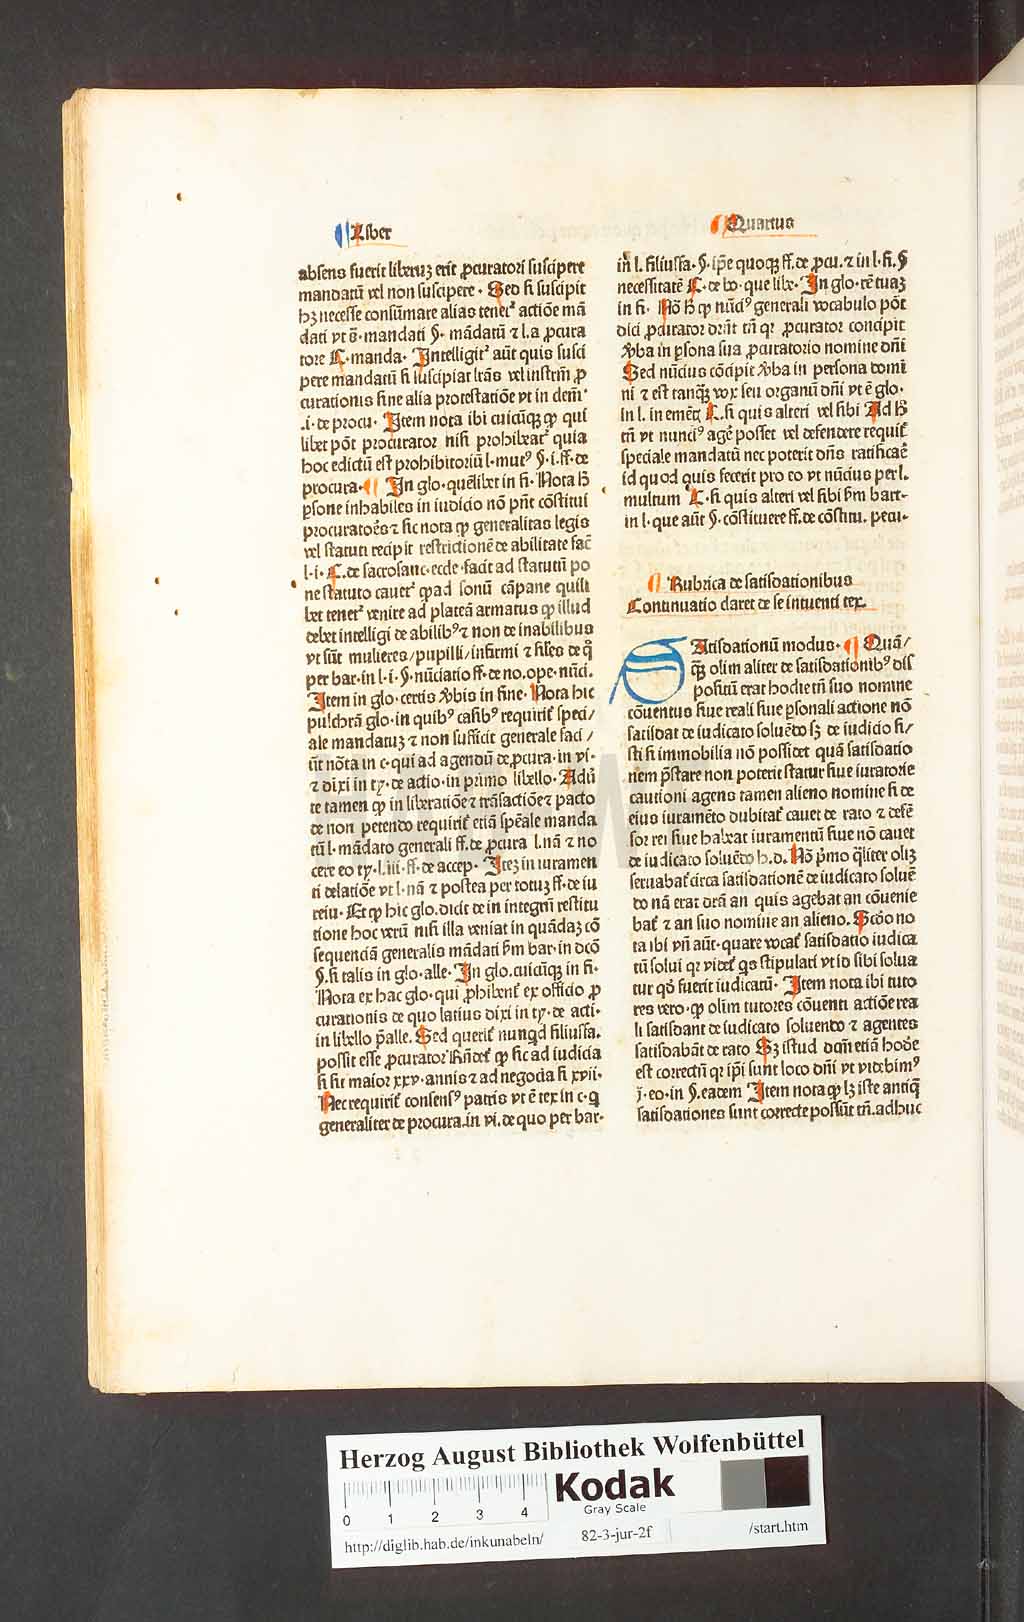 Liber
Quartus
absens fuerit liberuz erit ꝓcuratori suscipere
mandatū vel non suscipere · Sed si suscipit
hꝫ necesse consūmare alias tenetᷣ actiōe mā
dati vt ē · mandati §. mādatū ⁊ l.a ꝓcura
tore C · manda · Intelligitᷣ aūt quis susci
pere mandatū si suscipiat lr̄as vel instrm̄ ꝓ
curationis sine alia protestatiōe vt in dem̄
.i · de procu · Item nota ibi cuicūqꝫ ꝙ qui
libet pōt procurator nisi prohibeatᷣ quia
hoc edictū est prohibitoriū l · mutꝰ §.i.ff.de
procura · ¶ In glo · quēlibet in fi · Nota ꝙ
ꝑsone inhabiles in iudicio nō pn̄t cōstitui
procuratoēs ⁊ sic nota ꝙ generalitas legis
vel statuti recipit restrictionē de abilitate fac̄
l · i · C. de sacrosanc · eccle · facit ad statutū po
ne statuto cauetᷣ ꝙ ad sonū cāpane quili
bet tenetᷣ venire ad plateā armatus ꝙ illud
debet intelligi de abilibꝰ ⁊ non de inabilibus
vt sūt mulieres / pupilli / infirmi ⁊ siĺes de qͦ
per bar · in l · i · §. nūciatio ff · de no.ope · nūci.
Item in glo · certis v̄bis in fine · Nota hic
pulchrā glo · in quibꝰ casibꝰ requiritᷣ speci /
ale mandatuz ⁊ non sufficit generale faci /
ūt nōta in c · qui ad agendū de ꝓcura · in vi ·
⁊ dixi in ty · de actio · in primo libello · Adū
te tamen ꝙ in liberatiōe ⁊ trāsactiōe ⁊ pacto
de non petendo requiritᷣ etiā spēale manda
tū l · mādato generali ff.de ꝓcura l.nā ⁊ no
cere eo ty · l.iii · ff · de accep · Iteꝫ in iuramen
ti delatiōe vt l · nā ⁊ postea per totuꝫ ff · de iu
reiu · Et ꝙ hic glo.dicit de in integrū restitu
tione hoc verū nisi illa veniat in quādaꝫ cō
sequenciā generalis mādati ẜm bar · in dc̄o
§.si talis in glo · alle · In glo.cuicūqꝫ in fi ·
Nota ex hac glo · qui ꝓhibentᷣ ex officio ꝓ
curationis de quo latius dixi in ty · de acti ·
in libello p̄alle. Sed queritᷣ nunqd filiusfa.
possit esse ꝓcurator Rn̄detᷣ ꝙ sic ad iudicia
si sit maior xxv · annis ⁊ ad negocia si xvii ·
Nec requiritᷣ consensꝰ patris vt ē tex in c · q
generaliter de procura.in vi. de quo per bar ·
in l. filiusfa · §. ip̄e quoqꝫ ff.de ꝓcu.⁊ in l · fi. §
necessitatē C · de bo · que libe · In glo · rē tuaꝫ
in fi · Nō ꝙ ꝙ nūciꝰ generali vocabulo pōt
dici ꝓcurator drāt tn̄ qꝛ ꝓcurator concipit
v̄ba in ꝑsona sua ꝓcuratorio nomine dn̄i
Sed nūcius cōcipit v̄ba in persona domi
ni ⁊ est tanqꝫ vox seu organū dn̄i vt ē glo ·
in l. in emētꝫ C. si quis alteri vel sibi Ad ꝙ
tn̄ vt nunciꝰ agē posset vel defendere requirit
speciale mandatū nec poterit dn̄s ratificarē
id quod quis fecerit pro eo vt nūcius per l.
multum C · si quis alteri vel sibi ẜm bart ·
in l · que aūt §. cōstituere ff.de cōstitu. pecu ·
¶ Rubrica de satisdationibus
Continuatio claret de se intuenti tex.
SAtisdationū modus · ¶ Quā /
qꝫ olim aliter de satisdationibꝰ dis
positū erat hodie tn̄ suo nomine
cōuentus siue reali siue ꝑsonali actione nō
satisdat de iudicato soluēdo sꝫ de iudicio si /
sti si immobilia nō possidet quā satisdatio
nem p̄stare non poterit statur siue iuratorie
cautioni agens tamen alieno nomine si de
eius iuramēto dubitatᷣ cauet de rato ⁊ defē
sor rei siue habeat iuramentū siue nō cauet
de iudicato soluēdo h.d. Nō pͥmo qͣliter olīꝫ
seruabatᷣ circa satisdationē de iudicato soluē
do nā erat drā an quis agebat an cōuenie
batᷣ ⁊ an suo nomine an alieno. Scdo no
ta ibi vn̄ aūt · quare vocatᷣ satisdatio iudica
tū solui qꝛ videtᷣ qs stipulari vt id sibi solua
tur qd̕ fuerit iudicatū · Item nota ibi tuto
res vero · ꝙ olim tutores cōuenti actiōe rea
li satisdant de iudicato soluendo ⁊ agentes
satisdabāt de rato Sꝫ istud dqm̄ etiā hodie
est correctū qꝛ ip̄i sunt loco dn̄i vt videbimꝰ
j̄. eo · in §.eadem Item nota ꝙ lꝫ iste antiq̄
satisdationes sunt correcte possūt tn̄.adhuc
Herzog August Bibliothek Wolfenbüttel
Kodak
Gray Scale
0 1 2 3 4
http://diglib.hab.de/inkunabeln/ 82-3-jur-2f /start.htm